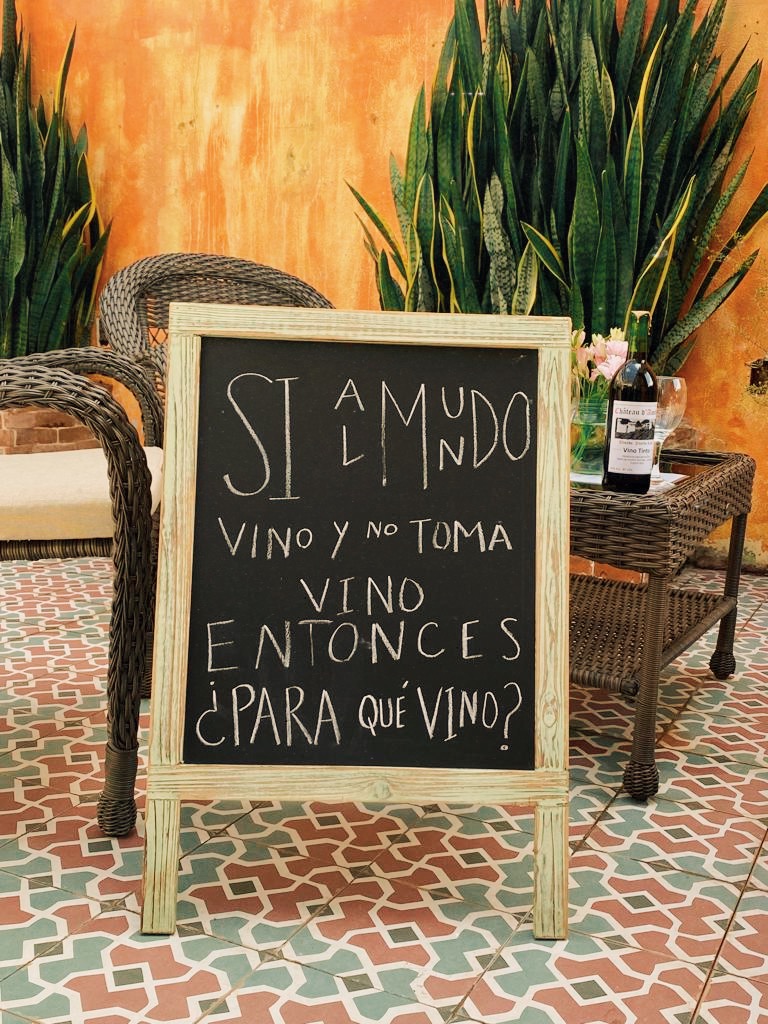 SI AL MUNDO
VINO Y NO TOMA
VINO
ENTONCES
¿PARA QUÉ VINO?
Vino Tinto